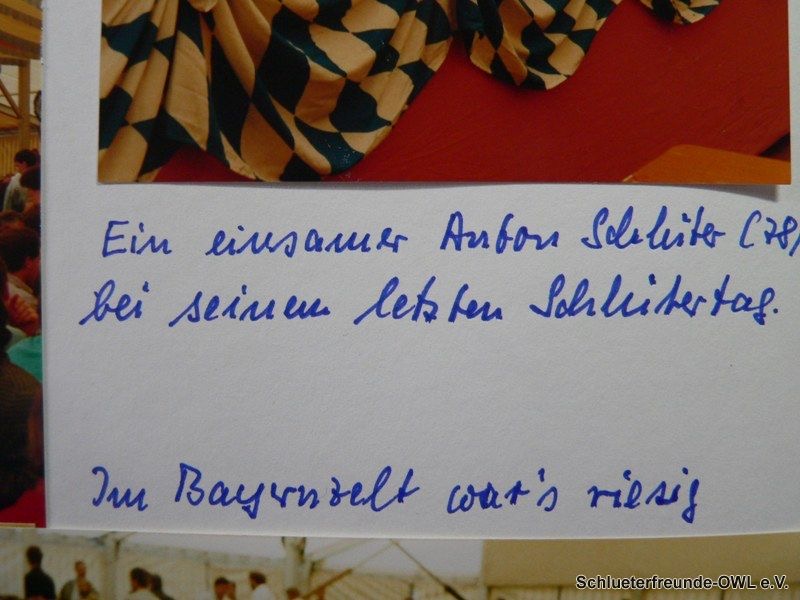 Ein einsamer Anton Schlüter (78)
bei seinem letzten Schlütertag.
Im Bayernzelt war's riesig
Schlueterfreunde-OWL e.V.